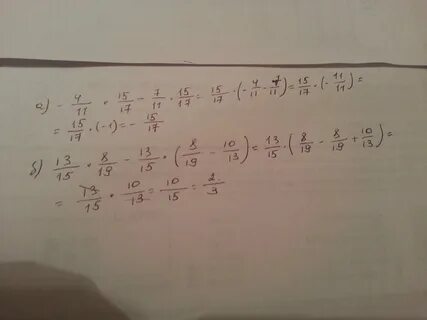 а) - 4/11 · 15/17 - 7/11 · 15/17 = 15/17 · (- 4/11 - 7/11) = 15/17 · (- 11/11) =
= 15/17 · (-1) = - 15/17
б) 13/15 · 8/19 - 13/15 · (8/19 - 10/13) = 13/15 · (8/19 - 8/19 + 10/13) =
= 13/15 · 10/13 = 10/15 = 2/3